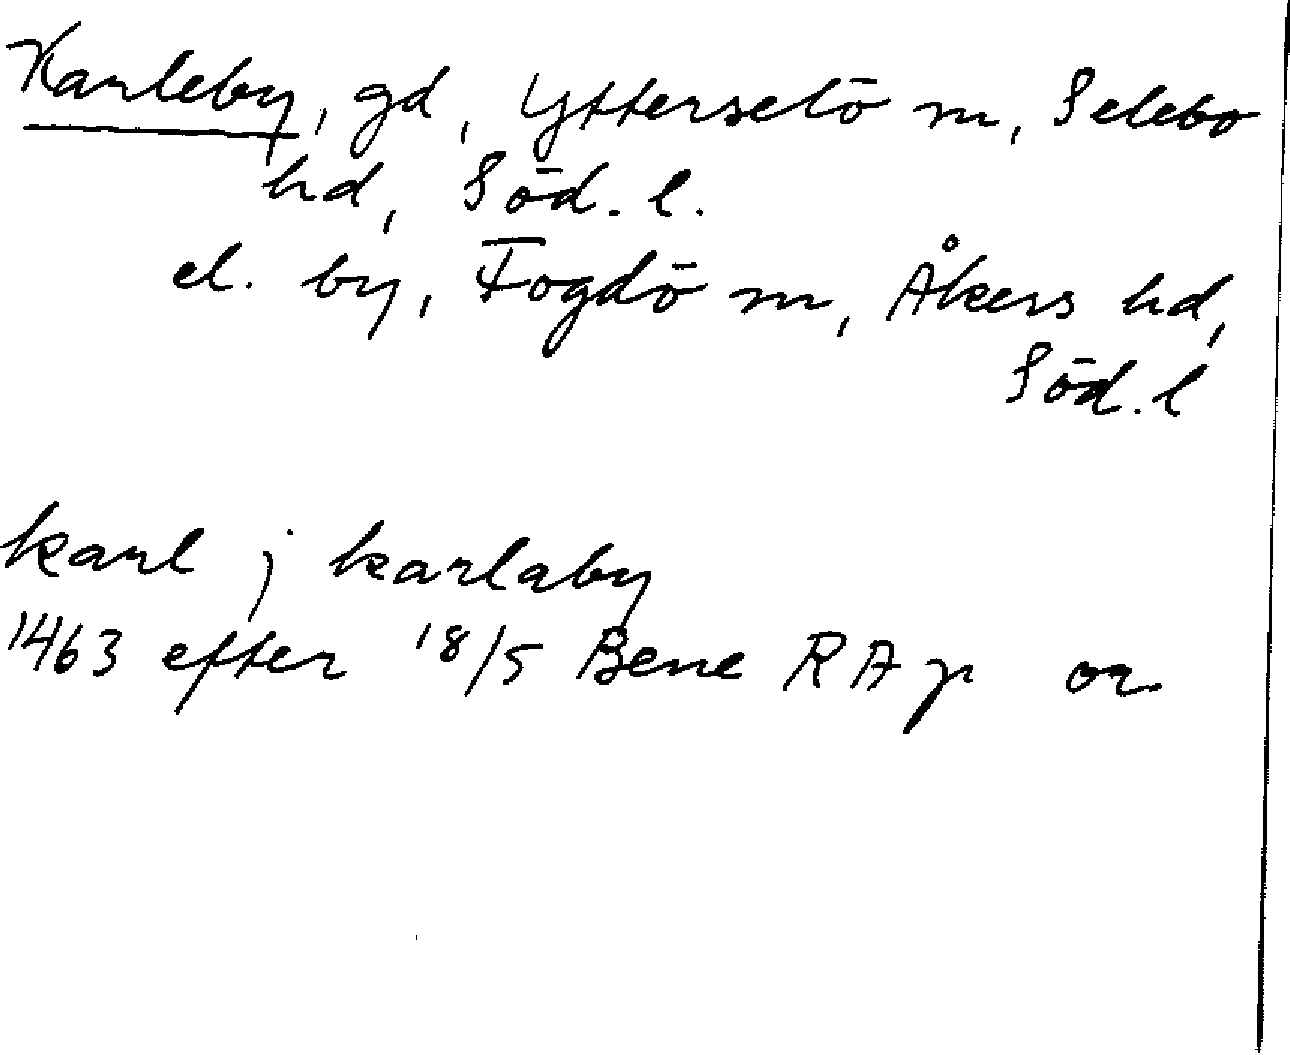 Karleby, gd, Ytterselö sn, Selebo
hd, Söd. l.
el. by, Fogdö sn, Åkers hd,
Söd. l
karl j karlaby
1463 efter 18/5 Bene RA p or